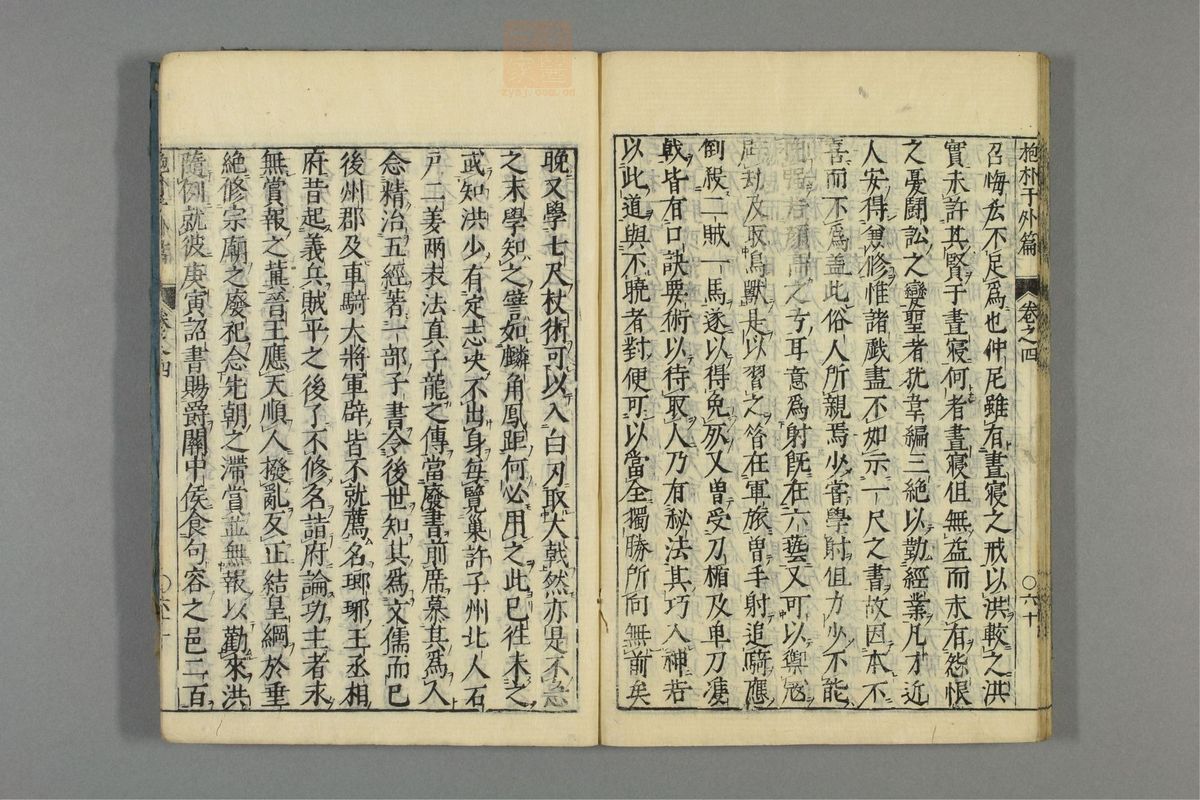 抱朴子外篇 卷之四 〇六十
召悔亥不足爲也仲尼雖有晝寢之戒以洪較之洪
實未許其賢于晝寢何者晝寢但無益而未有怨恨
之憂鬪訟之變聖者犹韋編三絶以勤經業凡才近
人安得兼修惟諸戲盡不如示一尺之書故因本不
喜而不爲盖此俗人所親焉少甞學射但力少不能
挽強若顔高之弓耳意爲射既在六藝又可以禦寇
辟劫及取鳥獸是以習之昔在軍旅曽手射追騎應
倒殺二賊一馬遂以得免死又曽受刀楯及单刀
戟皆有口訣要術以待取人乃有秘法其巧入神若
以此道與不曉者對便可以當全獨勝所向無前矣
晚又學七尺杖術可以入白刃取大戟然亦是不急
之末學知之譬如麟角鳳距何必用之此已徃未之
或知洪少有定志决不出身毎覽巢許子州北人石
戸二姜兩𡊮法真子龍之傳甞廢書前席慕其爲人
念精治五經著一部子書令後世知其爲文儒而已
後州郡及車騎大將軍辟皆不就薦名瑯琊王丞相
府昔起義兵賊平之後了不修名詣府論功主者永
無賞報之冀晉王應天順人撥亂反正結皇綱於垂
絶修宗廟之廢祀念先朝之滯賞並無報以勸來洪
隨例就彼庚寅詔書賜爵關中侯食句容之邑二百